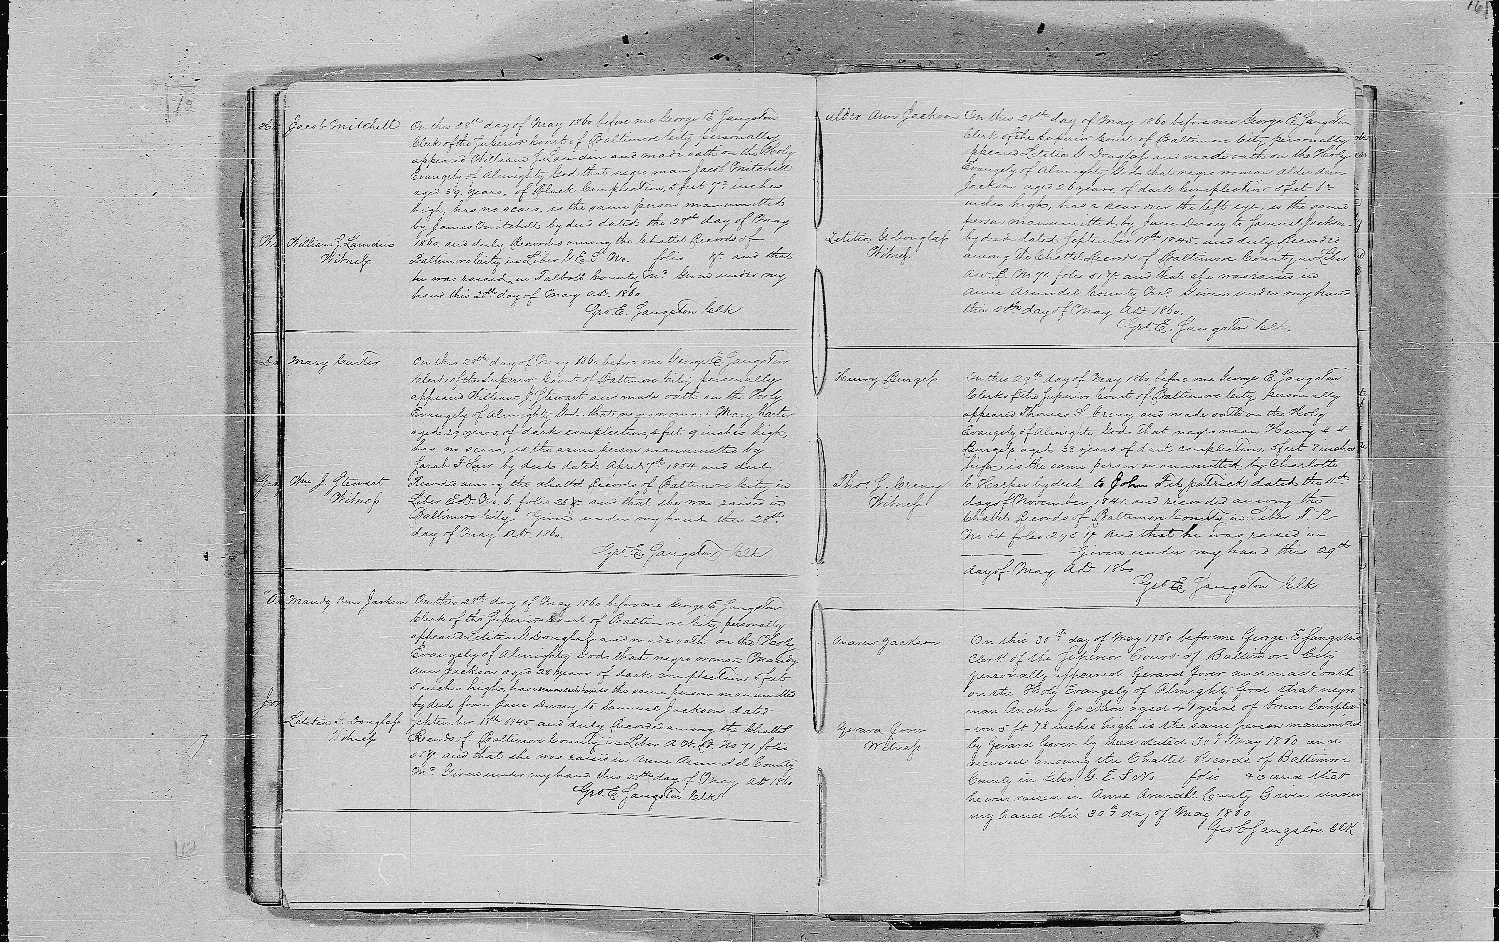 Jacob Mitchell
On this 28th day of May 1860 before me George E. Sangston
Clerk of the Superior Court of Baltimore City personally
appeared William J. and made oath on the Holy
Evangely of Almighty God that negro man Jacob Mitchell
aged 39 years, of Black Complexion, 5 feet 7 inches
high, has no scars, is the same person manumitted
by James by deed dated the 28th day of May
1860, and duly Recorded among the Chattel Records of
Baltimore City in Liber G. E. S. No. folio &c and that
he was raised in Talbott County Md Given under my
hand this 28th day of May AD. 1860
Geo. E. Sangston Clk
William J.
Witness
Mary
On this 28th day of May 1860 before me George E. Sangston
Clerk of the Superior Court of Baltimore City personally
appeared William J. Stewart and made oath on the Holy
Evangely of Almighty God that negro woman Mary
aged years, of dark complection, 5 feet 9 inches high,
has no scars, is the same person manumitted by
Sarah by deed dated April 7th 1854 and duly
Recorded among the chattel Records of Baltimore City in
Liber Ed. No. 6 folio &c and that she was raised in
Baltimore City Given under my hand this 28th
day of May AD. 1860.
Geo. E. Sangston Clk
Wm J. Stewart
Witness
Mandy Ann Jackson
On this 28th day of May 1860 before me George E. Sangston
Clerk of the Superior Court of Baltimore City, personally
appeared Letitia G. Douglass and made oath on the Holy
Evangely of Almighty God that negro woman Mandy
Ann Jackson aged 28 years of dark complection 5 feet
inches high, has is the same person manumitted
by deed from Jane Dorsey to Samuel Jackson dated
September 18th 1845 and duly Recorded among the Chattel
Records of Baltimore County in Liber A. W. B. No 71 folio
&c and that she was raised in Anne Arundel County
Md Given under my hand this 28th day of May AD 1860
Geo. E. Sangston Clk
Letitia G. Douglass
Witness
Ann Jackson
On this 28th day of May 1860 before me George E. Sangston
Clerk of the Superior Court of Baltimore City, personally
appeared Letitia G. Douglass and made oath on the Holy
Evangely of Almighty God that negro woman Ann
Jackson aged 26 years, of dark Complection 5 feet
inches high, has a scar over the left eye, is the same
person manumitted by Jane Dorsey to Samuel Jackson
by deed dated September 18th 1845, and duly Recorded
among the Chattel Records of Baltimore County in Liber
A. W. B. No 71 folio 51 &c and that she was raised in
Anne Arundel County Md. Given under my hand
this 28th day of May AD 1860.
Geo. E. Sangston Clk.
Letitia G. Douglass
Witness
Henry
On this 29th day of May 1860, before me George E. Sangston
Clerk of the Superior Court of Baltimore City personally
appeared Thomas S. and made oath on the Holy
Evangely of Almighty God that negro man Henry
aged 33 years of dark complection, 5 feet inches
high, is the same person manumitted by Charlotte
C. Harper by deed to John Fitzpatrick dated the
day of November 1841. and recorded among the
Chattel Records of Baltimore County in Liber T. K.
No 64 folio 295 &c and that he was raised in
Given under my hand this 29th
day of May AD 1860
Geo E Sangston Clk
Thos S.
Witness
Andrew Jackson
On this 30th day of May 1860 before me George E. Sangston
Clerk of the Superior Court of Baltimore City
personally appeared Gerard Gover and made oath
on the Holy Evangely of Almighty God that negro
man Andrew Jackson aged 41 years of brown Complex-
-ion 5 ft 7½ inches high is the same person manumitted
by Gerard Gover by deed dated 30th May 1860 and
recorded among the Chattel Records of Baltimore
County in Liber G. E. S No folio &c and that
he was raised in Anne Arundel County Given under
my hand this 30th day of May 1860
Geo E Sangston Clk
Gerard Gover
Witness